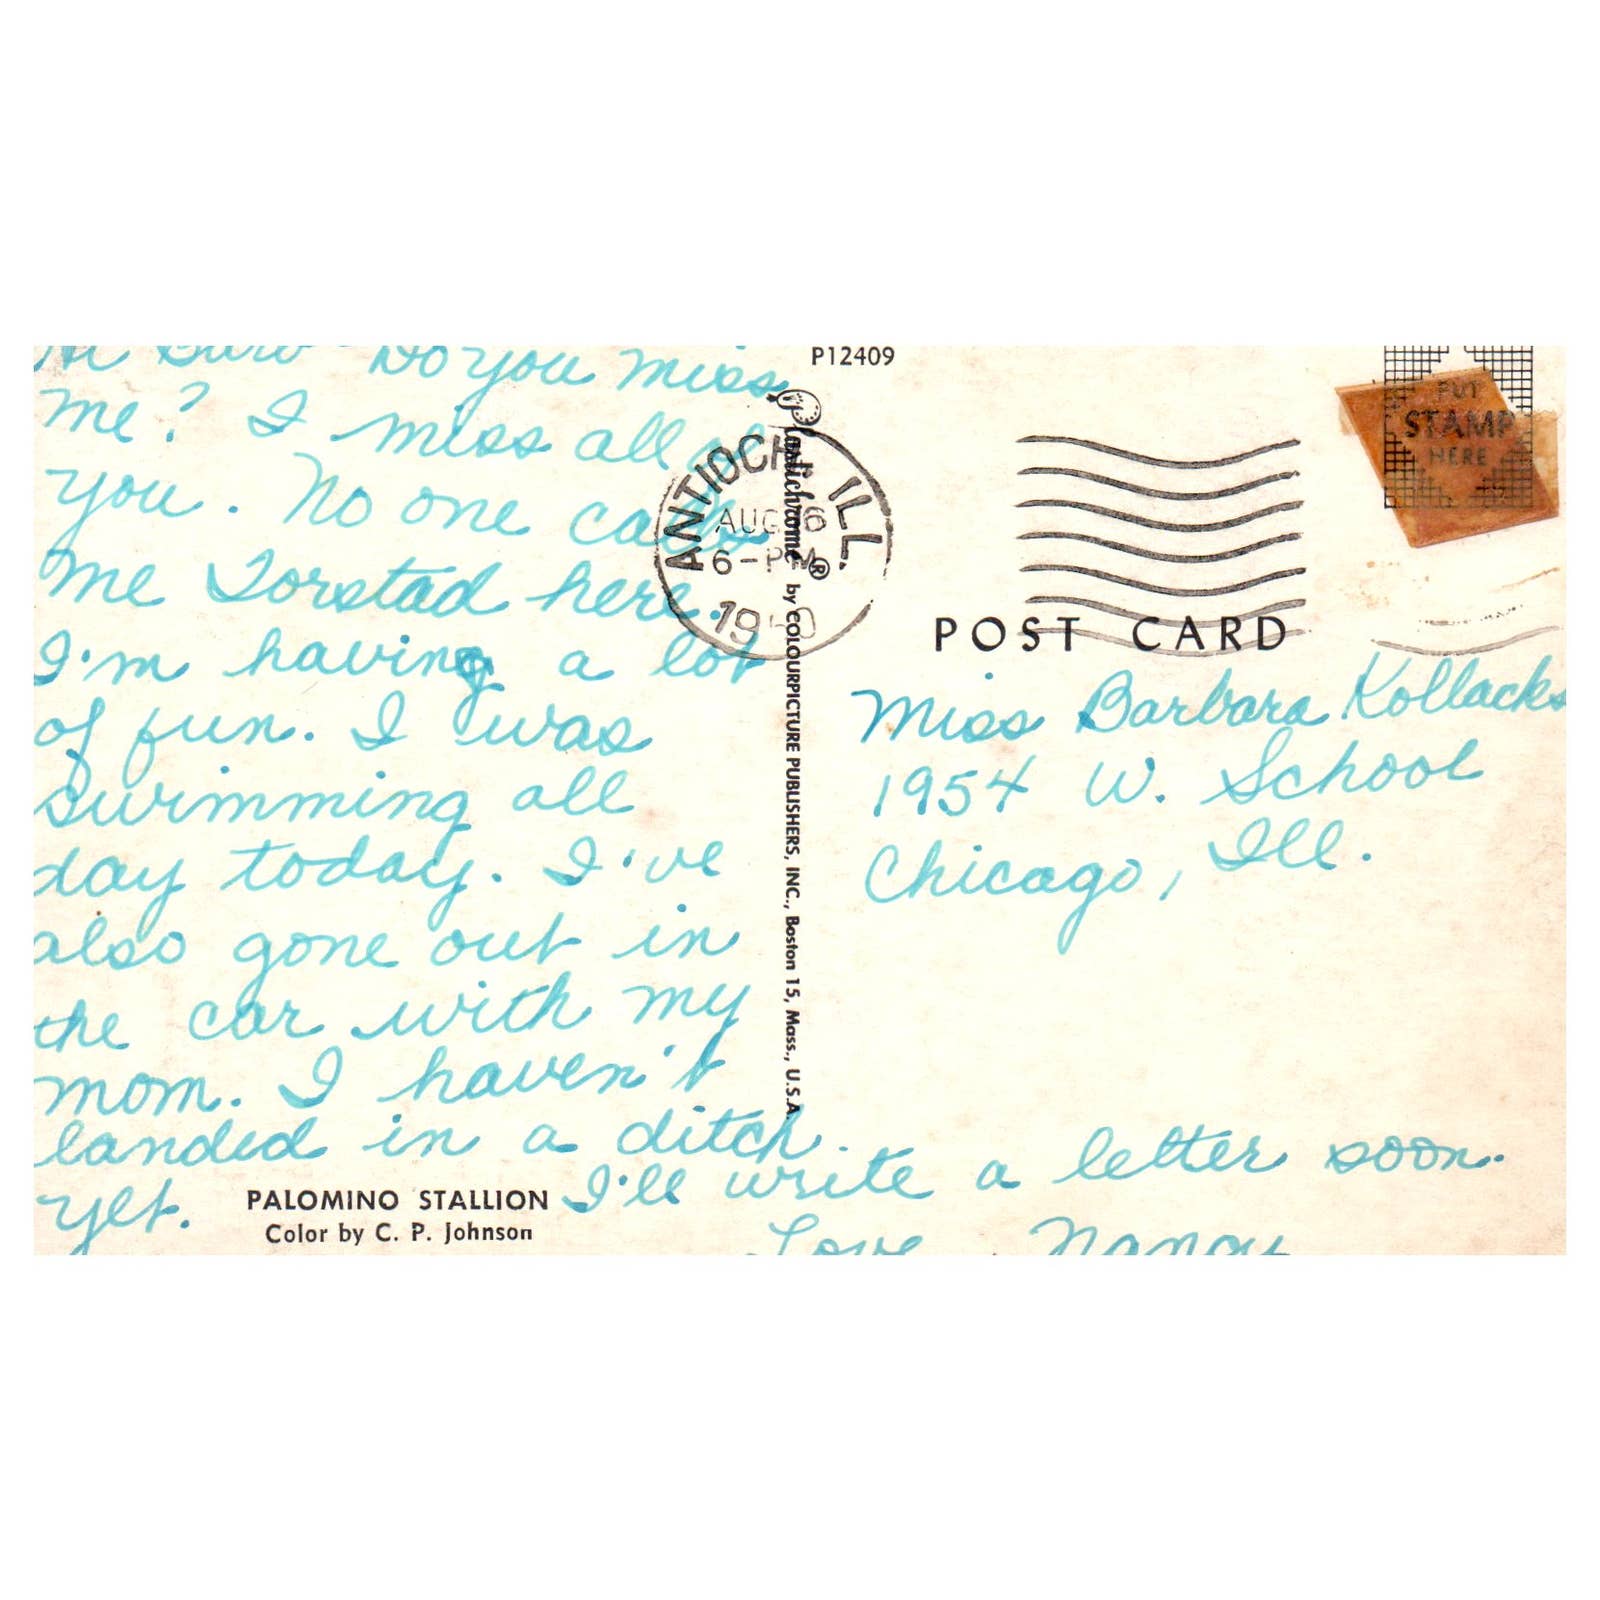 Hi Barb Do you miss
me? I miss all of
you. No one calls
me Torstad here.
I'm having a lot
of fun. I was
swimming all
day today. I've
also gone out in
the car with my
mom. I haven't
landed in a ditch
yet. I'll write a letter soon.
Love, Nancy
PALOMINO STALLION
Color by C. P. Johnson
P12409
Plastichrome® by COLOURPICTURE PUBLISHERS, INC., Boston 15, Mass., U.S.A.
ANTIOCH ILL.
AUG 6
6-PM
19
PUT
STAMP
HERE
POST CARD
Miss Barbara Kollacks
1954 W. School
Chicago, Ill.